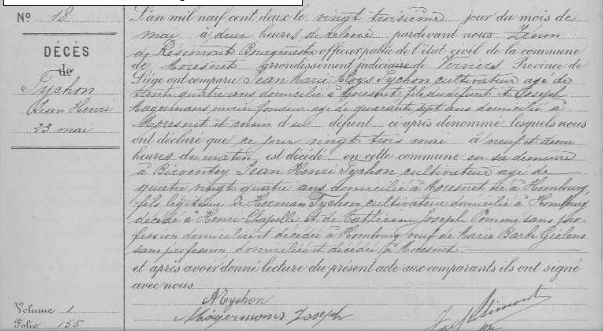 N° 18
DÉCÈS
de
Tychon
Jean Henri
23 mai
Volume 1
Folio 155
L'an mil neuf cent deux le vingt troisième jour du mois de
mai à deux heures de relevée pardevant nous Zénon
de Résimont Bourgmestre officier public de l'état civil de la commune
de Moresnet arrondissement judiciaire de Verviers Province de
Liége ont comparu Jean Marie Tychon cultivateur âgé de
trente quatre ans domicilié à Moresnet fils du défunt et Joseph
Hagermans âgé de quarante sept ans domicilié à
Moresnet et du défunt ci-après dénommé lesquels nous
ont déclaré que ce jour vingt trois mai à neuf et demi
heures du matin est décédé en cette commune en sa demeure
à Jean Henri Tychon cultivateur âgé de
quatre vingt quatre ans domicilié à Moresnet né à Hombourg
fils légitime de Herman Tychon cultivateur domicilié à Hombourg
décédé à Henri Chapelle et de Catherine Joseph sans pro
fession domiciliée et décédée à Hombourg veuf de Marie Barbe Gielens
sans profession domiciliée et décédée à Moresnet
et après avoir donné lecture du présent acte aux comparants ils ont signé
avec nous
Tychon
Hagermans Joseph